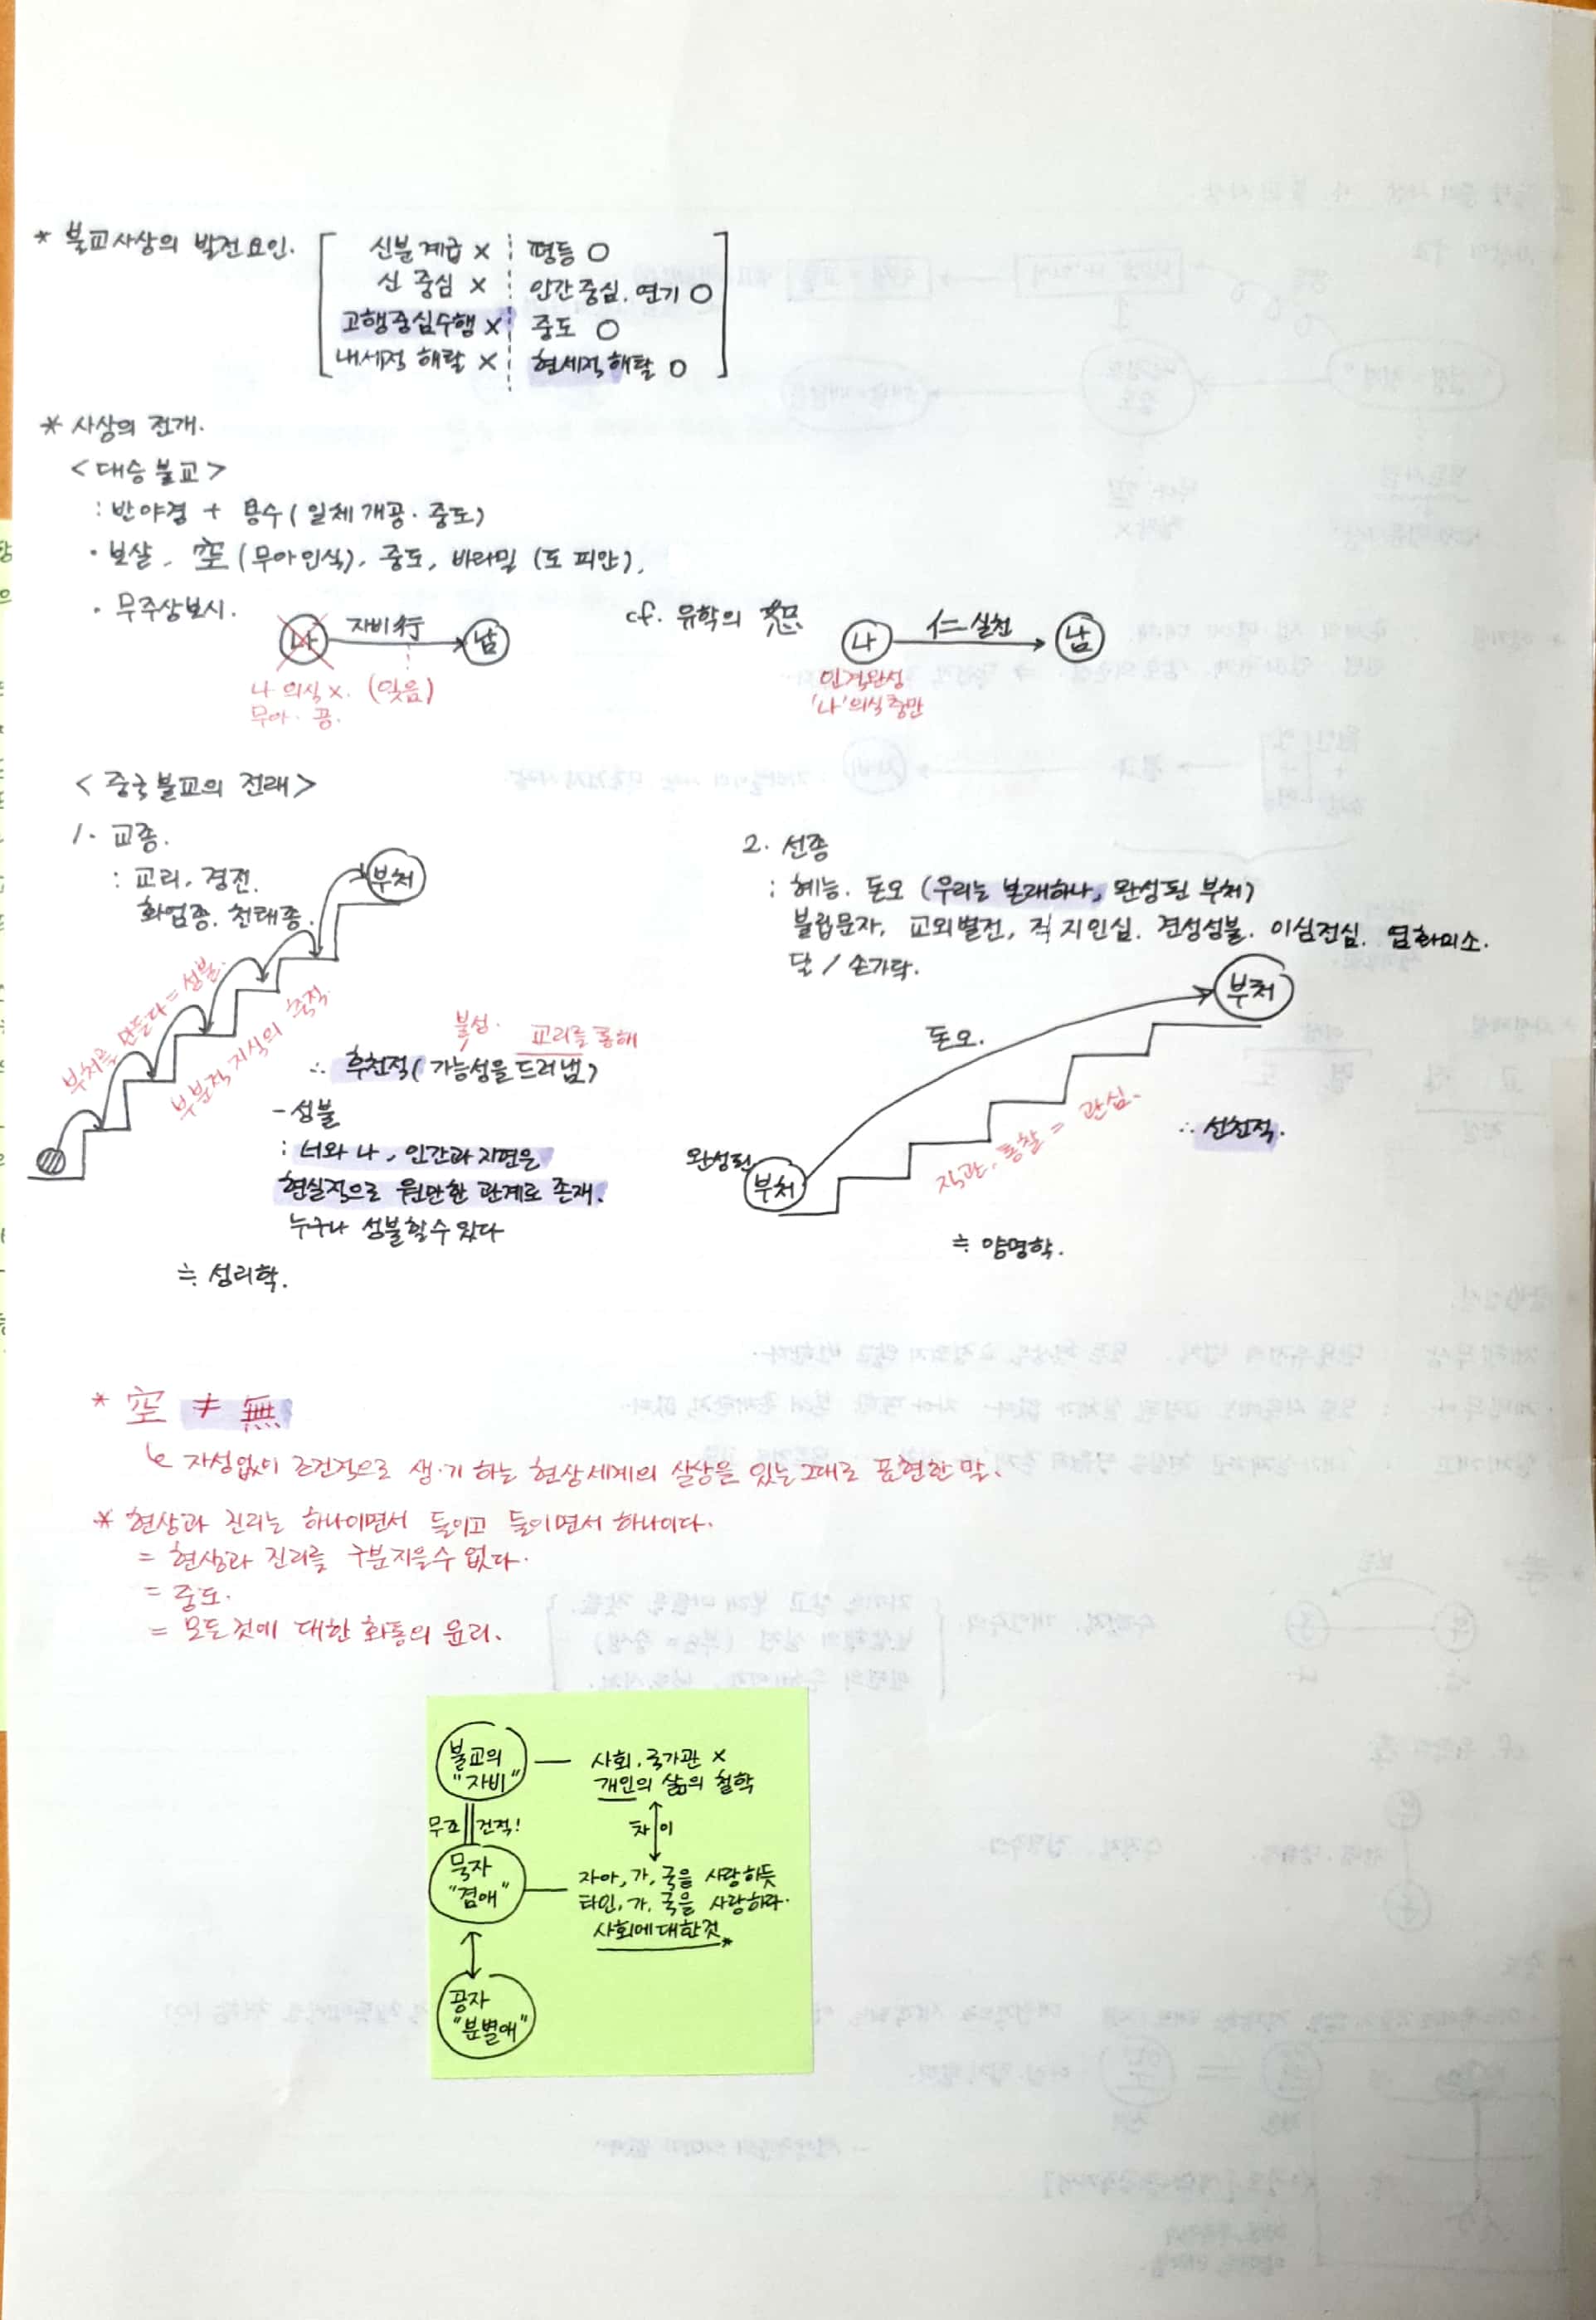 * 불교사상의 발전요인.
신분계급 X 평등 O
신 중심 X 인간중심. 연기 O
고행중심수행 X 중도 O
내세적 해탈 X 현세적 해탈 O
* 사상의 전개.
<대승불교>
: 반야경 + 용수(일체개공·중도)
· 보살, 空(무아인식), 중도, 바라밀(도피안),
· 무주상보시.
나 자비行 남
나 의식 x. (잊음)
무아·공.
cf. 유학의 恕
나 仁 실천 남
인격완성
'나'의식 충만
<중국불교의 전래>
1. 교종.
: 교리, 경전.
화엄종. 천태종.
부처
부처를 만들다 = 성불.
부분적 지식의 축적.
불성. 교리를 통해
∴ 후천적(가능성을 드러냄)
- 성불
: 너와 나, 인간과 자연은
현실적으로 원만한 관계로 존재.
누구나 성불할수 있다
≒ 성리학.
2. 선종
: 혜능. 돈오 (우리는 본래하나, 완성된 부처)
불립문자, 교외별전, 직지인심. 견성성불. 이심전심. 염화미소.
달 / 손가락.
부처
돈오.
직관, 통찰 = 관심.
∴ 선천적.
완성된
부처
≒ 양명학.
* 空 ≠ 無
↳ 자성없이 조건적으로 생·기 하는 현상세계의 실상을 있는 그대로 표현한 말.
* 현상과 진리는 하나이면서 둘이고 둘이면서 하나이다.
= 현상과 진리를 구분지을수 없다.
= 중도.
= 모든것에 대한 화통의 윤리.
불교의
"자비"
사회, 국가관 X
개인의 삶의 철학
무조건적!
차이
묵자
"겸애"
자아, 가, 국을 사랑하듯
타인, 가, 국을 사랑하라.
사회에 대한것*
공자
"분별애"